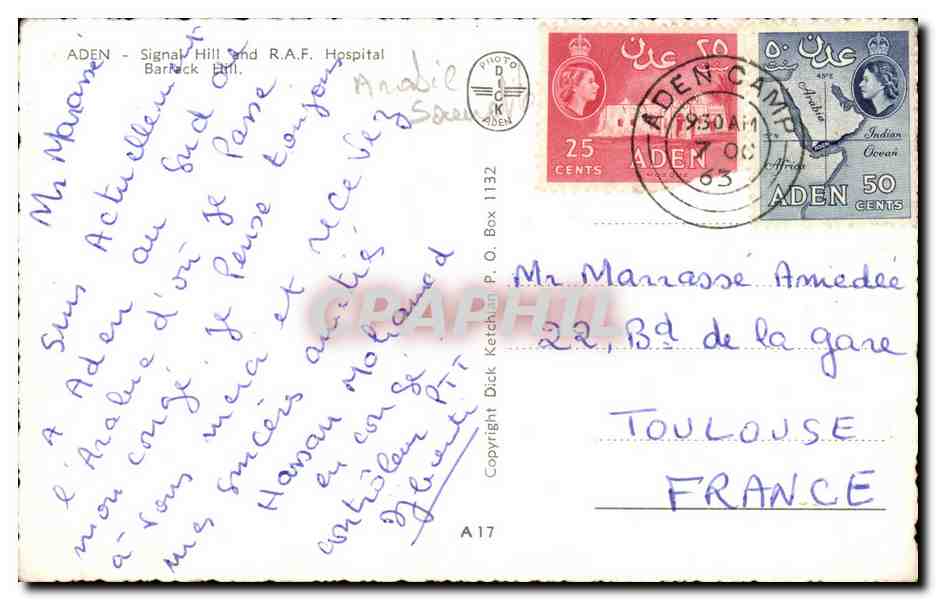 ADEN - Signal Hill and R.A.F. Hospital
Barrack Hill.
PHOTO
DICK
ADEN
Mr Marrassé
Suis Actuellement
A Aden au Sud de
l'Arabie d'où je Passe
mon congé. je Pense toujours
à-vous et recevez
mes sincères amitiés
Hassan Mohamed
en congé
contrôleur PTT
Djibouti
Copyright Dick Ketchian P. O. Box 1132
A 17
CPARHIL
عدن ٢٥
25
CENTS
ADEN
MOSQUE
ADEN CAMP
9.30 AM
7 OC
63
٥٠ عدن
45°E
Arabia
Indian
Ocean
Africa
ADEN 50
CENTS
Mr Marrassé Amédée
22, Bd de la gare
TOULOUSE
FRANCE